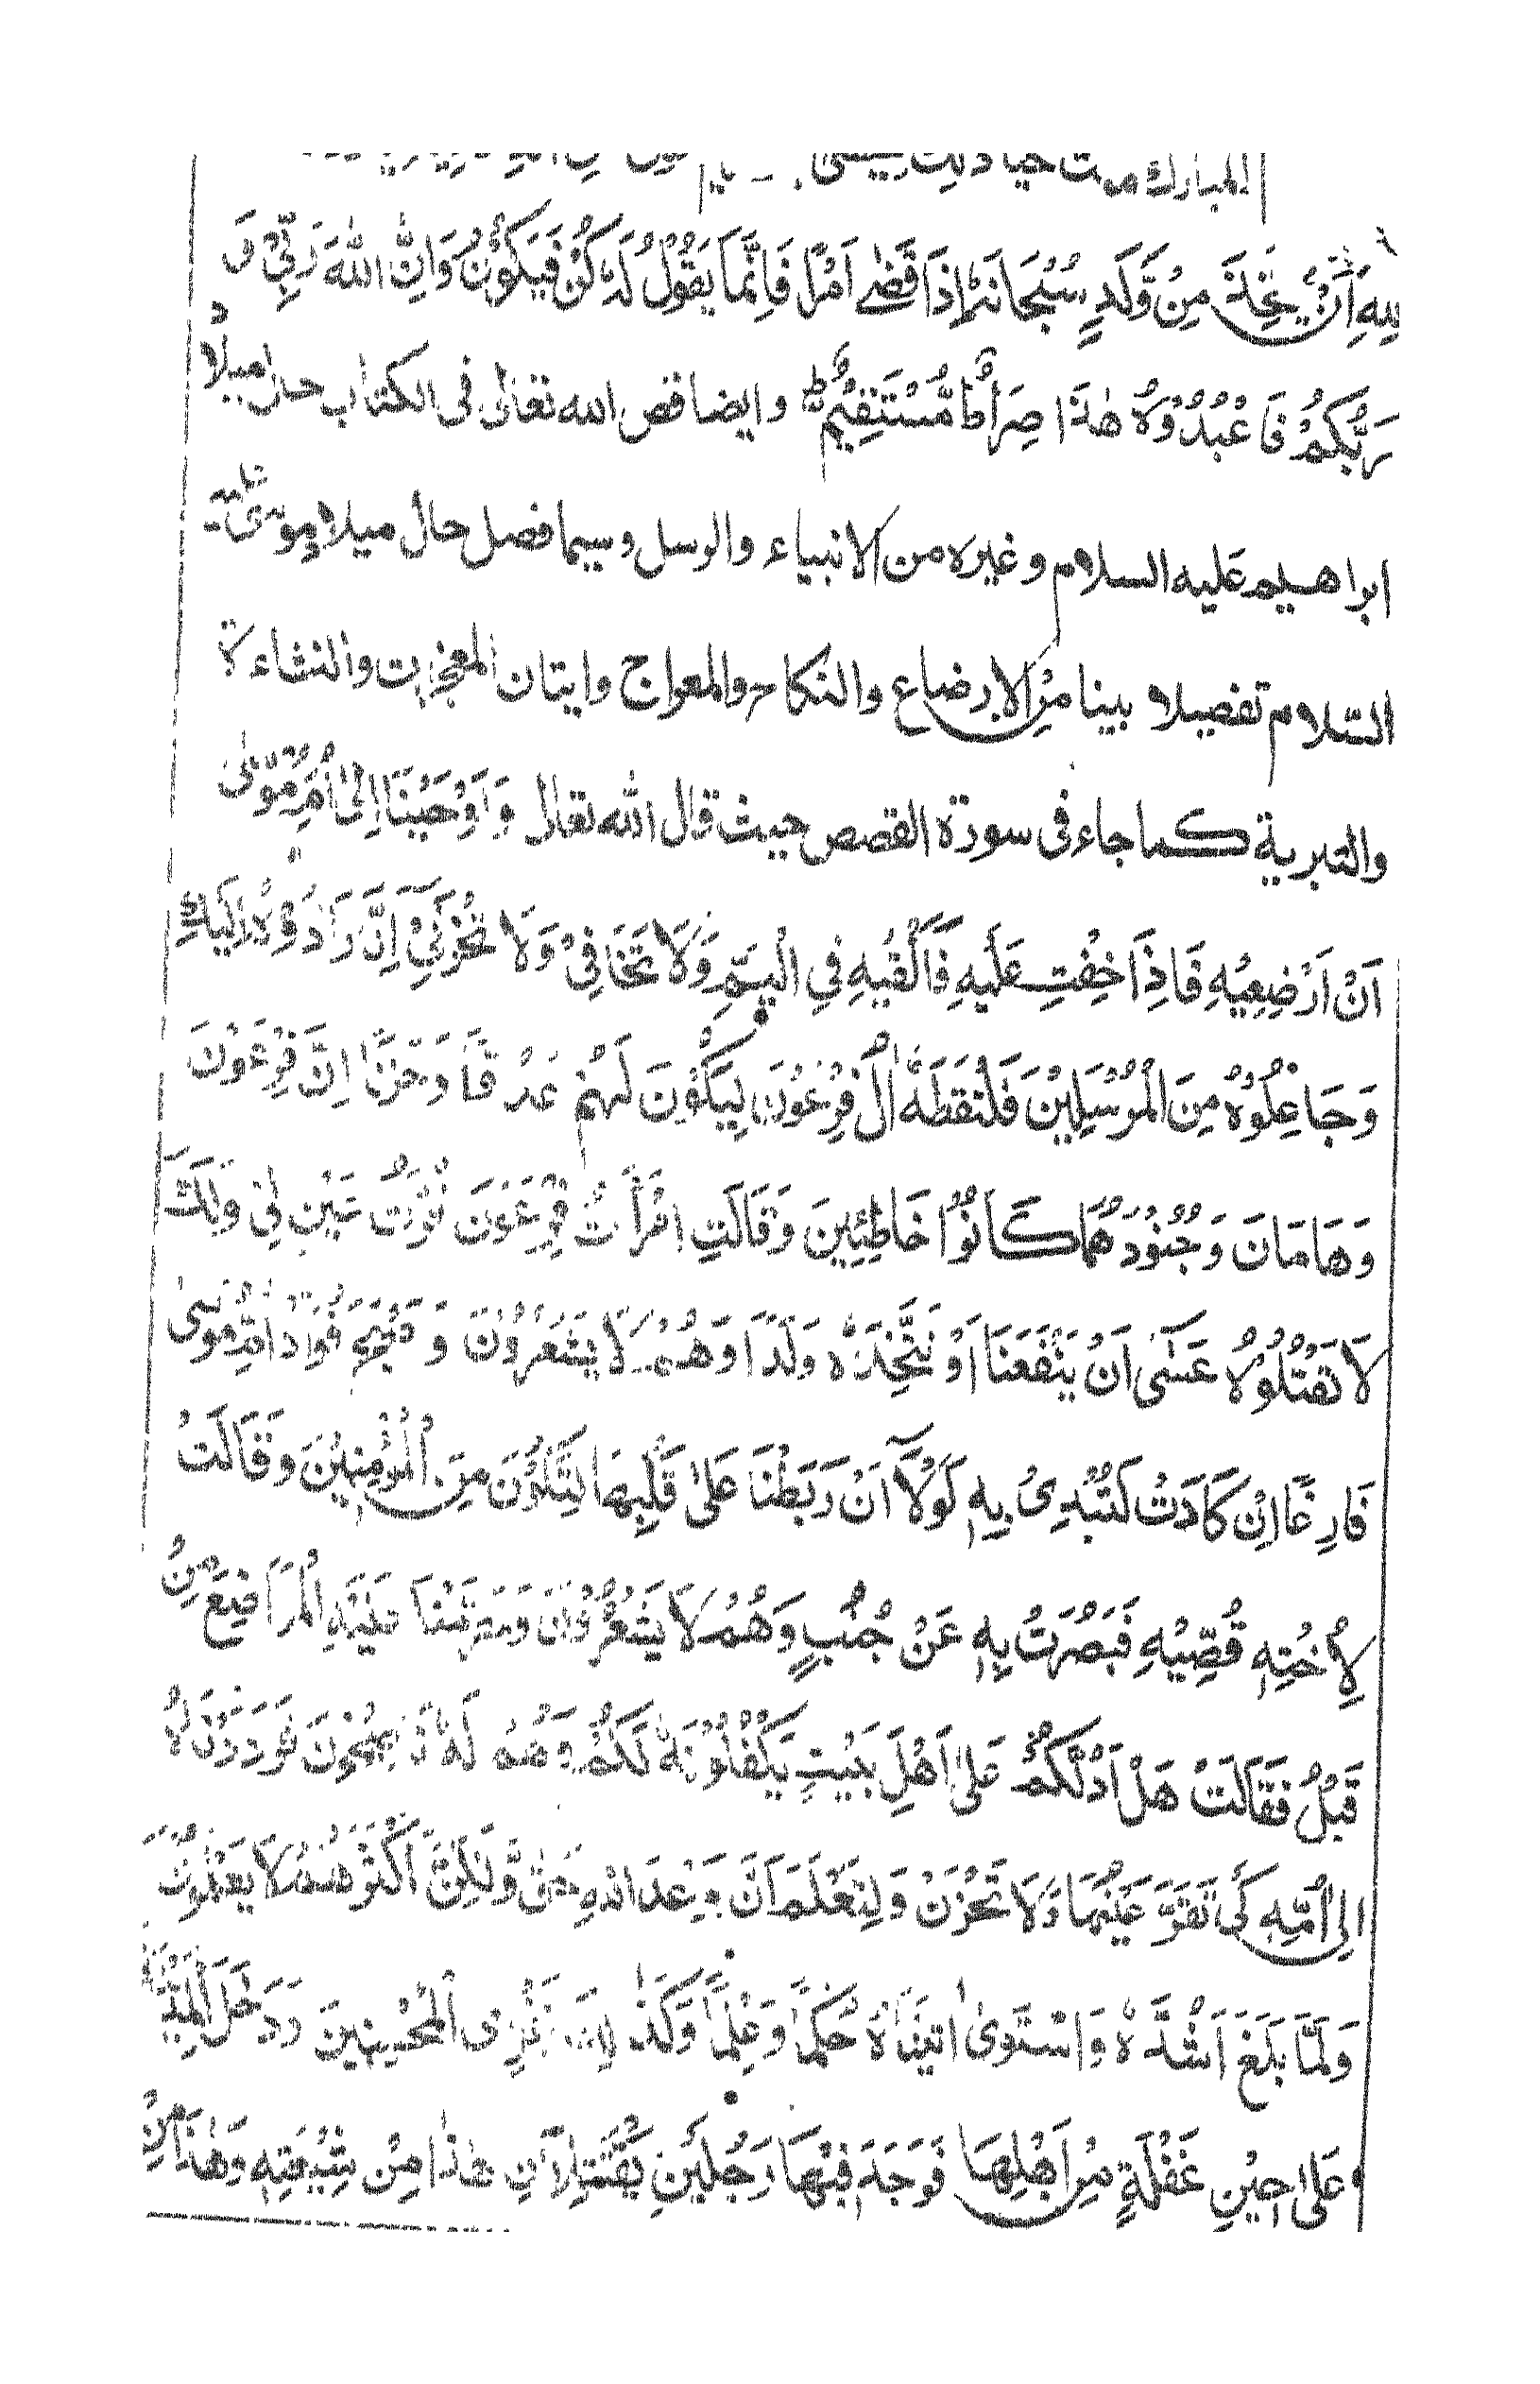 المبارك
لِلّٰهِ اَنْ يَّتَّخِذَ مِنْ وَّلَدٍ سُبْحَانَهٗ اِذَا قَضٰى اَمْرًا فَاِنَّمَا يَقُوْلُ لَهٗ كُنْ فَيَكُوْنُ وَاِنَّ اللّٰهَ رَبِّيْ وَ
رَبُّكُمْ فَاعْبُدُوْهُ هٰذَا صِرَاطٌ مُّسْتَقِيْمٌ ط وايضا قص الله تعالى فى الكتاب حال ميلاد
ابراهيم عليه السلام وغيره من الانبياء والرسل وسيما فصل حال ميلاد موسى عليه
السّلام تفصيلا بينا من الارضاع والنكاح والمعراج وايتان المعجزات والنشاءة
والتبرية كما جاء فى سورة القصص حيث قال الله تعالى وَاَوْحَيْنَا اِلٰى اُمِّ مُوْسٰى
اَنْ اَرْضِعِيْهِ فَاِذَا خِفْتِ عَلَيْهِ فَاَلْقِيْهِ فِي الْيَمِّ وَلَا تَخَافِيْ وَلَا تَحْزَنِيْ اِنَّا رَادُّوْهُ اِلَيْكِ
وَجَاعِلُوْهُ مِنَ الْمُرْسَلِيْنَ فَلْتَقَطَهٗ اٰلُ فِرْعَوْنَ لِيَكُوْنَ لَهُمْ عَدُوًّا وَحَزَنًا اِنَّ فِرْعَوْنَ
وَهَامَانَ وَجُنُوْدَهُمَا كَانُوْا خَاطِئِيْنَ وَقَالَتِ امْرَأَتُ فِرْعَوْنَ قُرَّتُ عَيْنٍ لِي وَلَكَ
لَا تَقْتُلُوْهُ عَسٰى اَنْ يَنْفَعَنَا اَوْ نَتَّخِذَهٗ وَلَدًا وَهُمْ لَا يَشْعُرُوْنَ وَ فُؤَادُ اُمِّ مُوْسٰى
فَارِغًا اِنْ كَادَتْ لَتُبْدِىْ بِهٖ لَوْلَآ اَنْ رَبَطْنَا عَلٰى قَلْبِهَا لِتَكُوْنَ مِنَ الْمُؤْمِنِيْنَ وَقَالَتْ
لِاُخْتِهٖ قُصِّيْهِ فَبَصُرَتْ بِهٖ عَنْ جُنُبٍ وَهُمْ لَا يَشْعُرُوْنَ وَحَرَّمْنَا عَلَيْهِ الْمَرَاضِعَ مِنْ
قَبْلُ فَقَالَتْ هَلْ اَدُلُّكُمْ عَلٰى اَهْلِ بَيْتٍ يَكْفُلُوْنَهٗ لَكُمْ وَهُمْ لَهٗ نَاصِحُوْنَ فَرَدَدْنٰهُ
اِلٰى اُمِّهٖ كَىْ تَقَرَّ عَيْنُهَا وَلَا تَحْزَنْ وَلِتَعْلَمَ اَنَّ وَعْدَ اللّٰهِ حَقٌّ وَّلٰكِنَّ اَكْثَرَهُمْ لَا يَعْلَمُوْنَ
وَلَمَّا بَلَغَ اَشُدَّهٗ وَاسْتَوٰى اٰتَيْنَاهُ حُكْمًا وَعِلْمًا وَكَذٰلِكَ نَجْزِى الْمُحْسِنِيْنَ وَدَخَلَ الْمَدِيْنَةَ
عَلٰى حِيْنِ غَفْلَةٍ مِنْ اَهْلِهَا فَوَجَدَ فِيْهَا رَجُلَيْنِ يَقْتَتِلَانِ هٰذَا مِنْ شِيْعَتِهٖ وَهٰذَا مِنْ